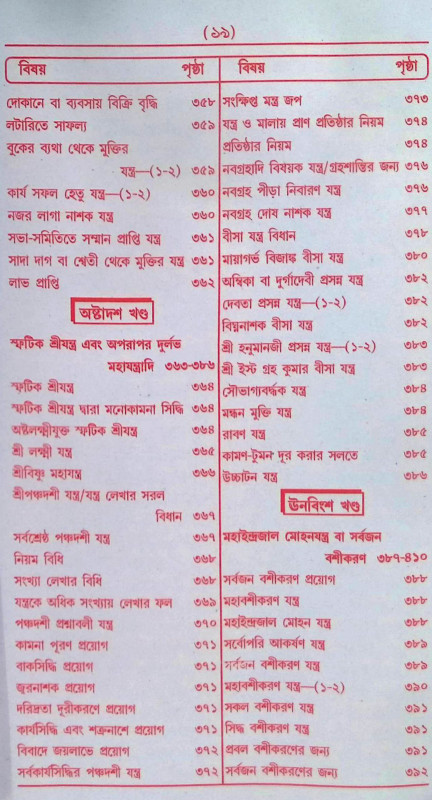 (১৯)
বিষয় পৃষ্ঠা
দোকানে বা ব্যবসায় বিক্রি বৃদ্ধি ৩৫৮
লটারিতে সাফল্য ৩৫৯
বুকের ব্যথা থেকে মুক্তির
যন্ত্র—(১-২) ৩৫৯
কার্য সফল হেতু যন্ত্র—(১-২) ৩৬০
নজর লাগা নাশক যন্ত্র ৩৬০
সভা-সমিতিতে সম্মান প্রাপ্তি যন্ত্র ৩৬১
সাদা দাগ বা শ্বেতী থেকে মুক্তির যন্ত্র ৩৬১
লাভ প্রাপ্তি ৩৬২
অষ্টাদশ খণ্ড
স্ফটিক শ্রীযন্ত্র এবং অপরাপর দুর্লভ
মহাযন্ত্রাদি ৩৬৩-৩৮৬
স্ফটিক শ্রীযন্ত্র ৩৬৪
স্ফটিক শ্রীযন্ত্র দ্বারা মনোকামনা সিদ্ধি ৩৬৪
অষ্টলক্ষ্মীযুক্ত স্ফটিক শ্রীযন্ত্র ৩৬৪
শ্রী লক্ষ্মী যন্ত্র ৩৬৫
শ্রীবিষ্ণু মহাযন্ত্র ৩৬৬
শ্রীপঞ্চদশী যন্ত্র/যন্ত্র লেখার সরল
বিধান ৩৬৭
সর্বশ্রেষ্ঠ পঞ্চদশী যন্ত্র ৩৬৭
নিয়ম বিধি ৩৬৮
সংখ্যা লেখার বিধি ৩৬৮
যন্ত্রকে অধিক সংখ্যায় লেখার ফল ৩৬৯
পঞ্চদশী প্রশ্নাবলী যন্ত্র ৩৭০
কামনা পূরণ প্রয়োগ ৩৭১
বাকসিদ্ধি প্রয়োগ ৩৭১
জ্বরনাশক প্রয়োগ ৩৭১
দরিদ্রতা দূরীকরণে প্রয়োগ ৩৭১
কার্যসিদ্ধি এবং শত্রুনাশে প্রয়োগ ৩৭১
বিবাদে জয়লাভে প্রয়োগ ৩৭২
সর্বকার্যসিদ্ধির পঞ্চদশী যন্ত্র ৩৭২
বিষয় পৃষ্ঠা
সংক্ষিপ্ত মন্ত্র জপ ৩৭৩
যন্ত্র ও মালায় প্রাণ প্রতিষ্ঠার নিয়ম ৩৭৪
প্রতিষ্ঠার নিয়ম ৩৭৪
নবগ্রহাদি বিষয়ক যন্ত্র/গ্রহশান্তির জন্য ৩৭৬
নবগ্রহ পীড়া নিবারণ যন্ত্র ৩৭৬
নবগ্রহ দোষ নাশক যন্ত্র ৩৭৭
বীসা যন্ত্র বিধান ৩৭৮
মায়াগর্ভ বিজাঙ্ক বীসা যন্ত্র ৩৮০
অম্বিকা বা দুর্গাদেবী প্রসন্ন যন্ত্র ৩৮২
দেবতা প্রসন্ন যন্ত্র—(১-২) ৩৮২
বিঘ্ননাশক বীসা যন্ত্র ৩৮২
শ্রী হনুমানজী প্রসন্ন যন্ত্র—(১-২) ৩৮৩
শ্রী ইস্ট গ্রহ কুমার বীসা যন্ত্র ৩৮৩
সৌভাগ্যবর্দ্ধক যন্ত্র ৩৮৪
মন্ধন মুক্তি যন্ত্র ৩৮৪
রাবণ যন্ত্র ৩৮৫
কামণ-টুমন দূর করার সলতে ৩৮৫
উচ্চাটন যন্ত্র ৩৮৬
ঊনবিংশ খণ্ড
মহাইন্দ্রজাল মোহনযন্ত্র বা সর্বজন
বশীকরণ ৩৮৭-৪১০
সর্বজন বশীকরণ প্রয়োগ ৩৮৮
মহাবশীকরণ যন্ত্র ৩৮৮
মহাইন্দ্রজাল মোহন যন্ত্র ৩৮৮
সর্বোপরি আকর্ষণ যন্ত্র ৩৮৯
সর্বজন বশীকরণ যন্ত্র ৩৮৯
মহাবশীকরণ যন্ত্র—(১-২) ৩৯০
সকল বশীকরণ যন্ত্র ৩৯১
সিদ্ধ বশীকরণ যন্ত্র ৩৯১
প্রবল বশীকরণের জন্য ৩৯১
সর্বজন বশীকরণের জন্য ৩৯২